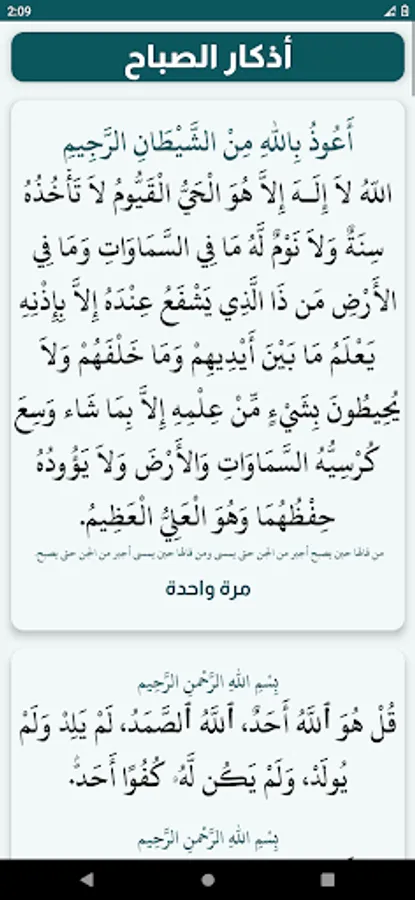 2:09
أذكار الصباح
أَعُوذُ بِاللهِ مِنْ الشَّيْطَانِ الرَّجِيمِ
اللّهُ لاَ إِلَـهَ إِلاَّ هُوَ الْحَيُّ الْقَيُّومُ لاَ تَأْخُذُهُ
سِنَةٌ وَلاَ نَوْمٌ لَّهُ مَا فِي السَّمَاوَاتِ وَمَا فِي
الأَرْضِ مَن ذَا الَّذِي يَشْفَعُ عِنْدَهُ إِلاَّ بِإِذْنِهِ
يَعْلَمُ مَا بَيْنَ أَيْدِيهِمْ وَمَا خَلْفَهُمْ وَلاَ
يُحِيطُونَ بِشَيْءٍ مِّنْ عِلْمِهِ إِلاَّ بِمَا شَاء وَسِعَ
كُرْسِيُّهُ السَّمَاوَاتِ وَالأَرْضَ وَلاَ يَؤُودُهُ
حِفْظُهُمَا وَهُوَ الْعَلِيُّ الْعَظِيمُ.
من قالها حين يصبح أجير من الجن حتى يمسى ومن قالها حين يمسى أجير من الجن حتى يصبح.
مرة واحدة
بِسْمِ اللهِ الرَّحْمنِ الرَّحِيم
قُلْ هُوَ ٱللَّهُ أَحَدٌ، ٱللَّهُ ٱلصَّمَدُ، لَمْ يَلِدْ وَلَمْ
يُولَدْ، وَلَمْ يَكُن لَّهُۥ كُفُوًا أَحَدٌۢ.
بِسْمِ اللهِ الرَّحْمنِ الرَّحِيم